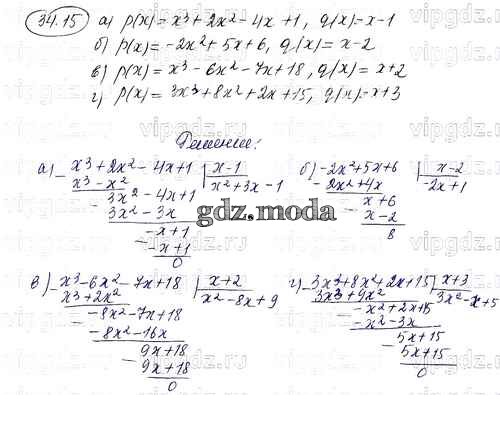 34.15 а) p(x) = x³ + 2x² - 4x + 1, q(x) = x - 1
б) p(x) = -2x² + 5x + 6, q(x) = x - 2
в) p(x) = x³ - 6x² - 7x + 18, q(x) = x + 2
г) p(x) = 3x³ + 8x² + 2x + 15, q(x) = x + 3
Решение:
а) - x³ + 2x² - 4x + 1 | x - 1
x³ - x² | x² + 3x - 1
- 3x² - 4x + 1
3x² - 3x
- -x + 1
-x + 1
0
б) -2x² + 5x + 6 | x - 2
- -2x² + 4x | -2x + 1
- x + 6
x - 2
8
gdz.moda
в) - x³ - 6x² - 7x + 18 | x + 2
x³ + 2x² | x² - 8x + 9
- -8x² - 7x + 18
-8x² - 16x
- 9x + 18
9x + 18
0
г) - 3x³ + 8x² + 2x + 15 | x + 3
3x³ + 9x² | 3x² - x + 5
- -x² + 2x + 15
-x² - 3x
- 5x + 15
5x + 15
0